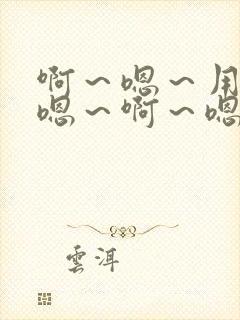 啊～嗯～用
嗯～啊～嗯
雲洱